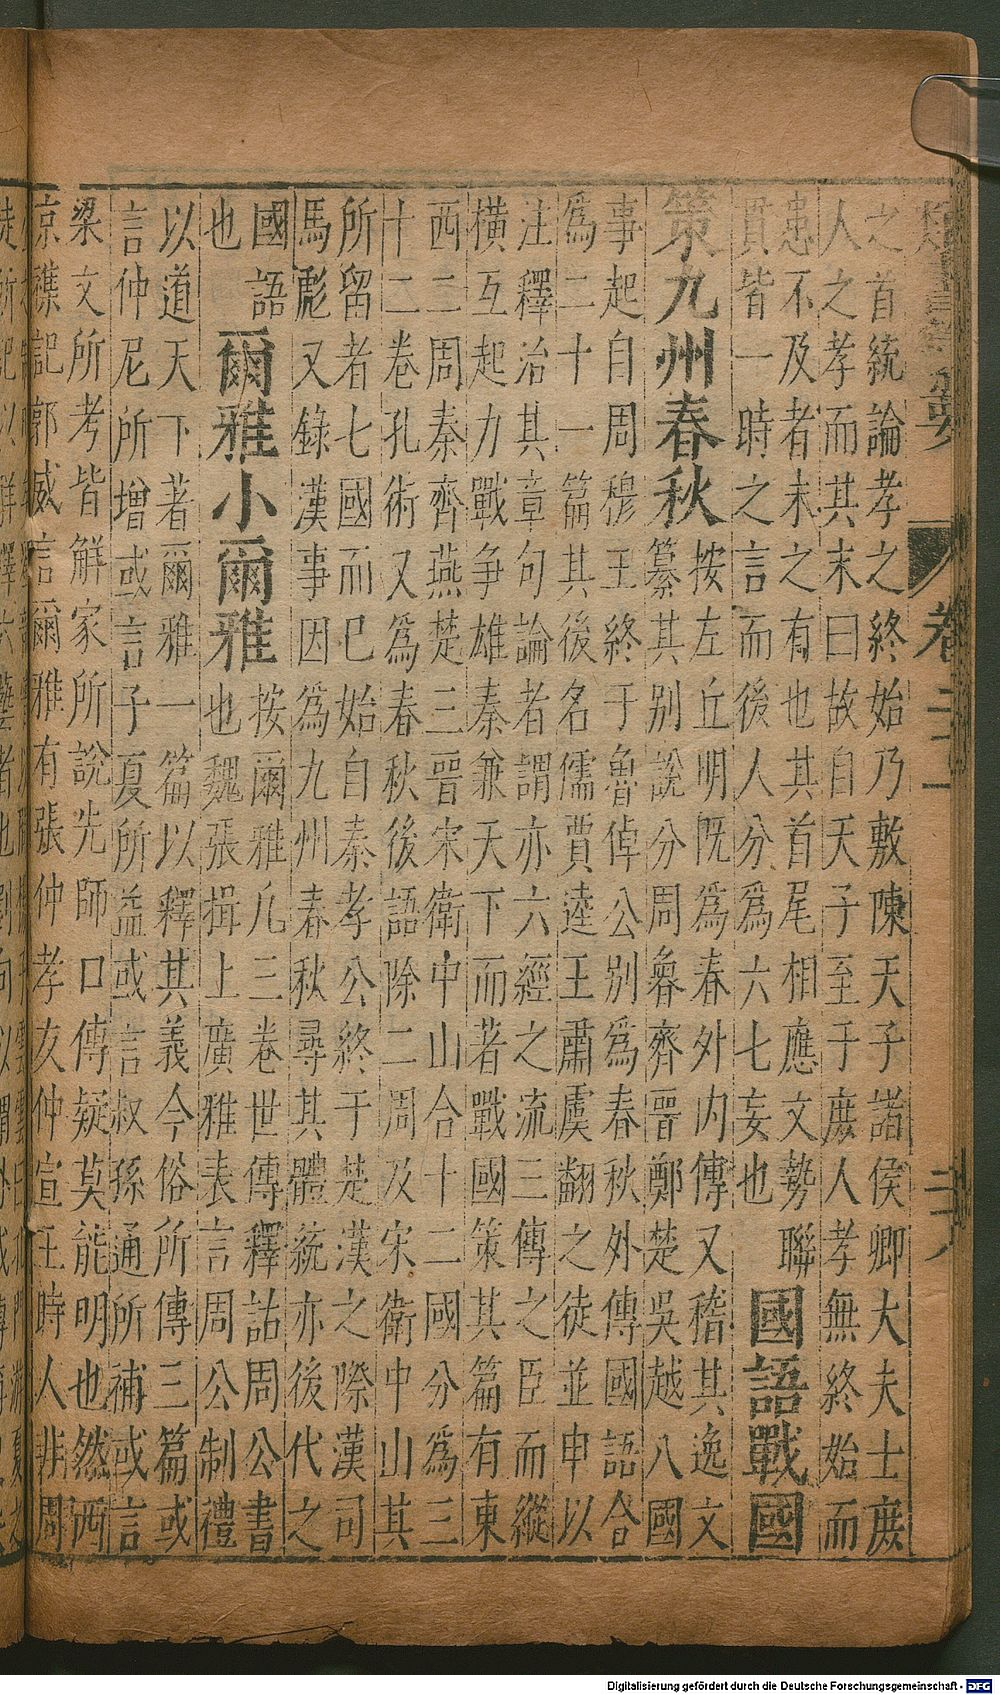 類書纂要 卷二十一 二十八
之首統論孝之終始乃敷陳天子諸侯卿大夫士庶
人之孝而其末曰故自天子至于庶人孝無終始而
患不及者未之有也其首尾相應文勢聯
貫皆一時之言而後人分爲六七妄也
國語戰國
策九州春秋
按左丘明既爲春外内傳又稽其逸文
纂其别說分周魯齊晉鄭楚吳越八國
事起自周穆王終于魯倬公别爲春秋外傳國語合
爲二十一篇其後名儒賈逵王肅虞翻之徒並申以
注釋治其章句論者謂亦六經之流三傳之臣而縱
橫互起力戰爭雄秦兼天下而著戰國策其篇有東
西二周秦齊燕楚三晉宋衛中山合十二國分爲三
十二卷孔術又爲春秋後語除二周及宋衛中山其
所留者七國而巳始自秦孝公終于楚漢之際漢司
馬彪又錄漢事因爲九州春秋尋其體統亦後代之
國語
也
爾雅小爾雅
按爾雅凡三卷世傳釋詁周公書
也魏張揖上廣雅表言周公制禮
以道天下著爾雅一篇以釋其義今俗所傳三篇或
言仲尼所增或言子夏所益或言叔孫通所補或言
梁文所考皆解家所說先師口傳疑莫能明也然西
京襍記郭威言爾雅有張仲孝友仲宣王時人非周
Digitalisierung gefördert durch die Deutsche Forschungsgemeinschaft - DFG